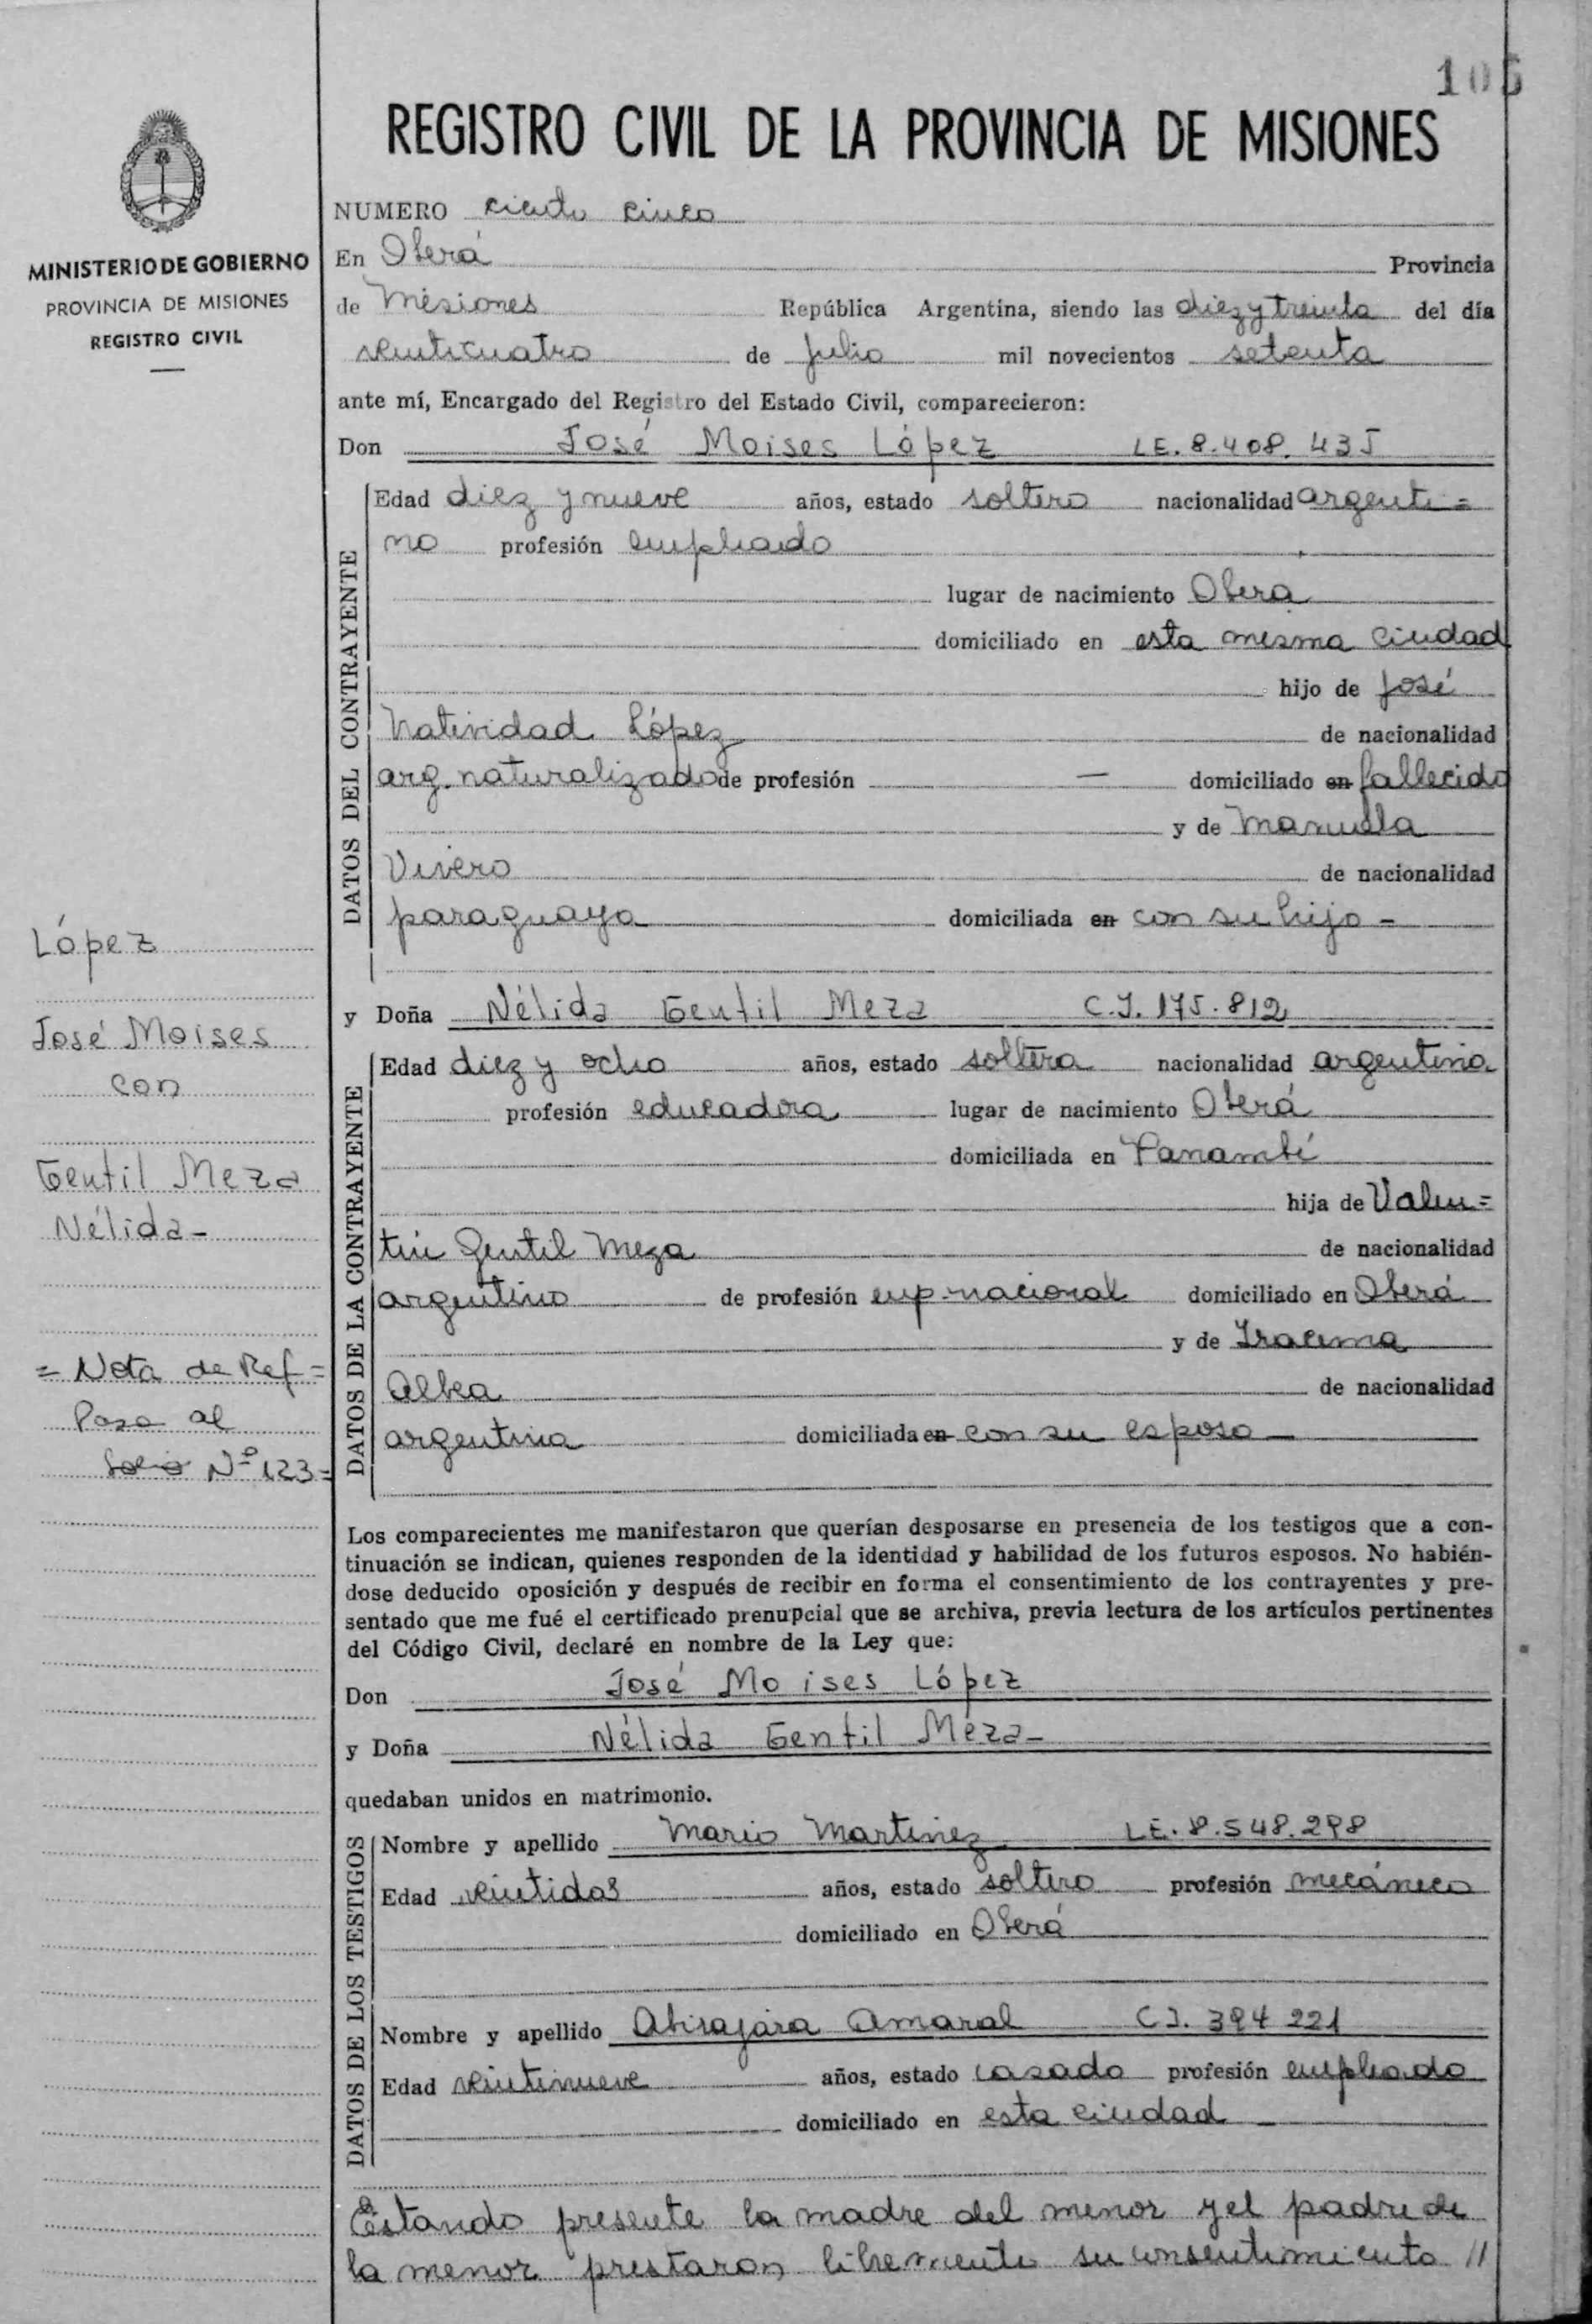 105
REGISTRO CIVIL DE LA PROVINCIA DE MISIONES
MINISTERIO DE GOBIERNO
PROVINCIA DE MISIONES
REGISTRO CIVIL
NUMERO ciento cinco
En Oberá Provincia
de Misiones República Argentina, siendo las diez y treinta del día
veinticuatro de julio mil novecientos setenta
ante mí, Encargado del Registro del Estado Civil, comparecieron:
Don José Moises López LE. 8.408.435
DATOS DEL CONTRAYENTE
Edad diez y nueve años, estado soltero nacionalidad argenti=
no profesión empleado
lugar de nacimiento Oberá
domiciliado en esta misma ciudad
hijo de José
Natividad López de nacionalidad
arg. naturalizado de profesión — domiciliado en fallecido
y de Manuela
Vivero de nacionalidad
paraguaya domiciliada en con su hijo -
y Doña Nélida Gentil Meza C.I. 175.812
DATOS DE LA CONTRAYENTE
Edad diez y ocho años, estado soltera nacionalidad argentina
profesión educadora lugar de nacimiento Oberá
domiciliada en Panambí
hija de Valen=
tin Gentil Meza de nacionalidad
argentino de profesión emp. nacional domiciliado en Oberá
y de Iracema
Albea de nacionalidad
argentina domiciliada en con su esposo —
López
José Moises
con
Gentil Meza
Nélida -
= Nota de Ref =
Pasa al
folio Nº 123 =
Los comparecientes me manifestaron que querían desposarse en presencia de los testigos que a con-
tinuación se indican, quienes responden de la identidad y habilidad de los futuros esposos. No habién-
dose deducido oposición y después de recibir en forma el consentimiento de los contrayentes y pre-
sentado que me fué el certificado prenupcial que se archiva, previa lectura de los artículos pertinentes
del Código Civil, declaré en nombre de la Ley que:
Don José Moises López
y Doña Nélida Gentil Meza -
quedaban unidos en matrimonio.
DATOS DE LOS TESTIGOS
Nombre y apellido Mario Martinez LE. 8.548.298
Edad veintidos años, estado soltero profesión mecánico
domiciliado en Oberá
Nombre y apellido Abirajara Amaral C.I. 394 221
Edad veintinueve años, estado casado profesión empleado
domiciliado en esta ciudad —
Estando presente la madre del menor y el padre de
la menor prestaron libremente su consentimiento //